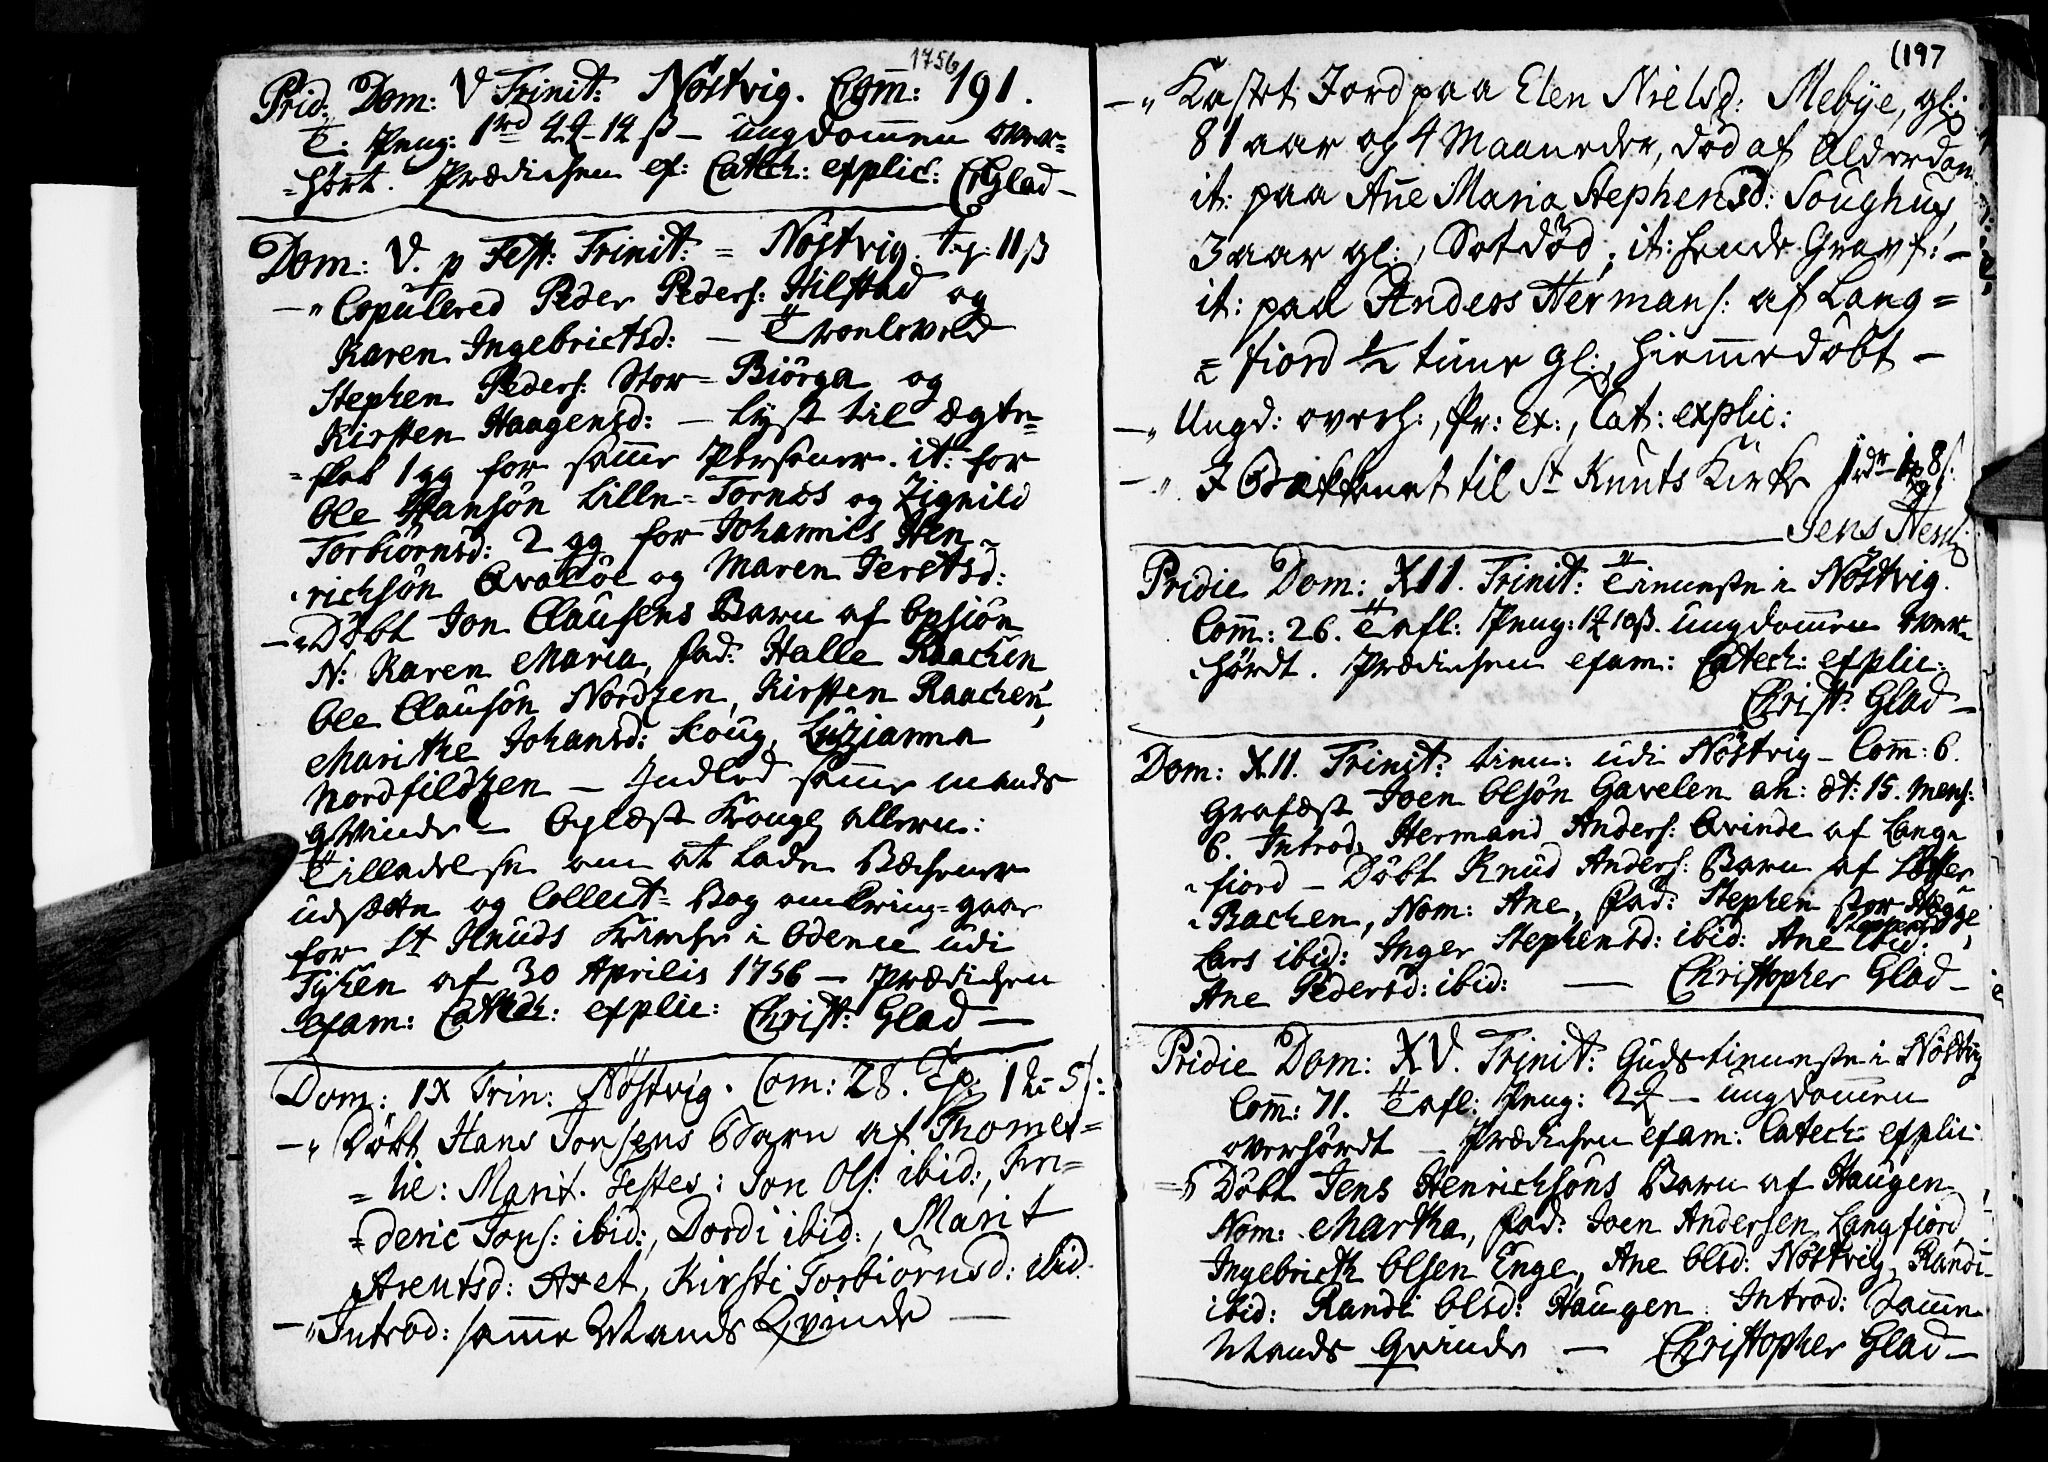 1756
Prid: Dom: V Trinit: Nöstvig. Com̄: 191.
T. Peng: 1 rd 2 12 ß – ungdommen over=
=hört. Prædichen ex: Catech: explic: C Glad –
Dom: V. p Fest: Trinit: = Nöstvig. T.p: 11 ß
–" Copulered Peder Peders: Hilstad og
Karen Ingebrictsd: – Trouloved
Stephen Peders: Stor=Biörga og
Kirsten Haagensd: – lyst til Ægte=
=skab 1 gg for samme Personer. it: for
Ole Hansön Lille=Tornes og Zignild
Torbiörnsd: 2 gg for Johannes Hen=
richsön Qvaløe og Maren Jeretsd:
–" Döbt Jon Clausens Barn af Opsiön
N: Karen Maria, fad: Halle Raachen,
Ole Clausön Nordzen, Kirsten Raachen,
Marithe Johansd: Skoug, Luzianna
Nordfildzen – Indled samme mands
qvinde – Oplæst Kongl allern:
Tilladelse om at lade Bechener
udsætte og Collect=Bog ombring=gaar
for St Knuds Kirche i Odense udi
Fyhen af 30 Aprilis 1756 – Prædichen
exam: Catech: explic: Christ: Glad –
Dom: IX Trin: Nöstvig. Com: 28. T.p: 1 5 ß:
–" Döbt Hans Jonsens Barn af Thomes=
=lie: Marit. Testes: Jon Ols: ibid:, Fri=
=deric Jons: ibid:, Dordi ibid:, Marit
Arentsd: Aret, Kirsti Torbiörnsd: ibid:
–" Introd: samme Mands Qvinde –
(197
–" Kastet Jord paa Elen Nielsd: Mebÿe, gl:
81 aar og 4 Maaneder, död af Alderdom
it: paa Añe Maria Stephensd: Soughus,
3 aar gl:, Sotdöd, it: hende Gravf: –
it: paa Anders Hermans: af Lang=
=fiord ½ time gl:, hiemmedöbt –
–" Ungd: overh:, Pr: ex:, Cat: explic:
–" I Bækkenet til St Knuts Kirke 1 8 ß:
Jens
Pridie Dom: XII. Trinit: Tieneste i Nöstvig.
Com̄: 26. Tafl: Peng: 10 ß. ungdommen over=
hørdt. Prædichen exam: Catech: explic:
Christ: Glad –
Dom: XII. Trinit: tien: udi Nöstvig – Com̄: 6.
Grafæst Joen Olsön Gavelen an: æt: 15. mens:
6. Introd: Hermand Anders: Qvinde af Lang=
fiord – Döbt Knud Anders: Barn af
Rachen, Nom: Ane, fad: Stephen stor Hegge
Lars ibid: Inger Stephensd: ibid: Ane ibid:,
Ane Pedersd: ibid: – Christopher Glad –
Pridie Dom: XV. Trinit: Guds tieneste i Nöstvig
Com̄: 71. Tafl: Peng: 2 – ungdommen
overhørdt – Prædichen exam: Catech explic:
Döbt Jens Henrichsöns Barn af Haugen
Nom: Martha, fad: Joen Andersen Langfiord
Ingebricth Olsen Enge, Ane Olsd: Nöstvig, Randi
ibid: Randi Olsd: Haugen. Introd: Samme
Mands Qvinde – Christopher Glad –